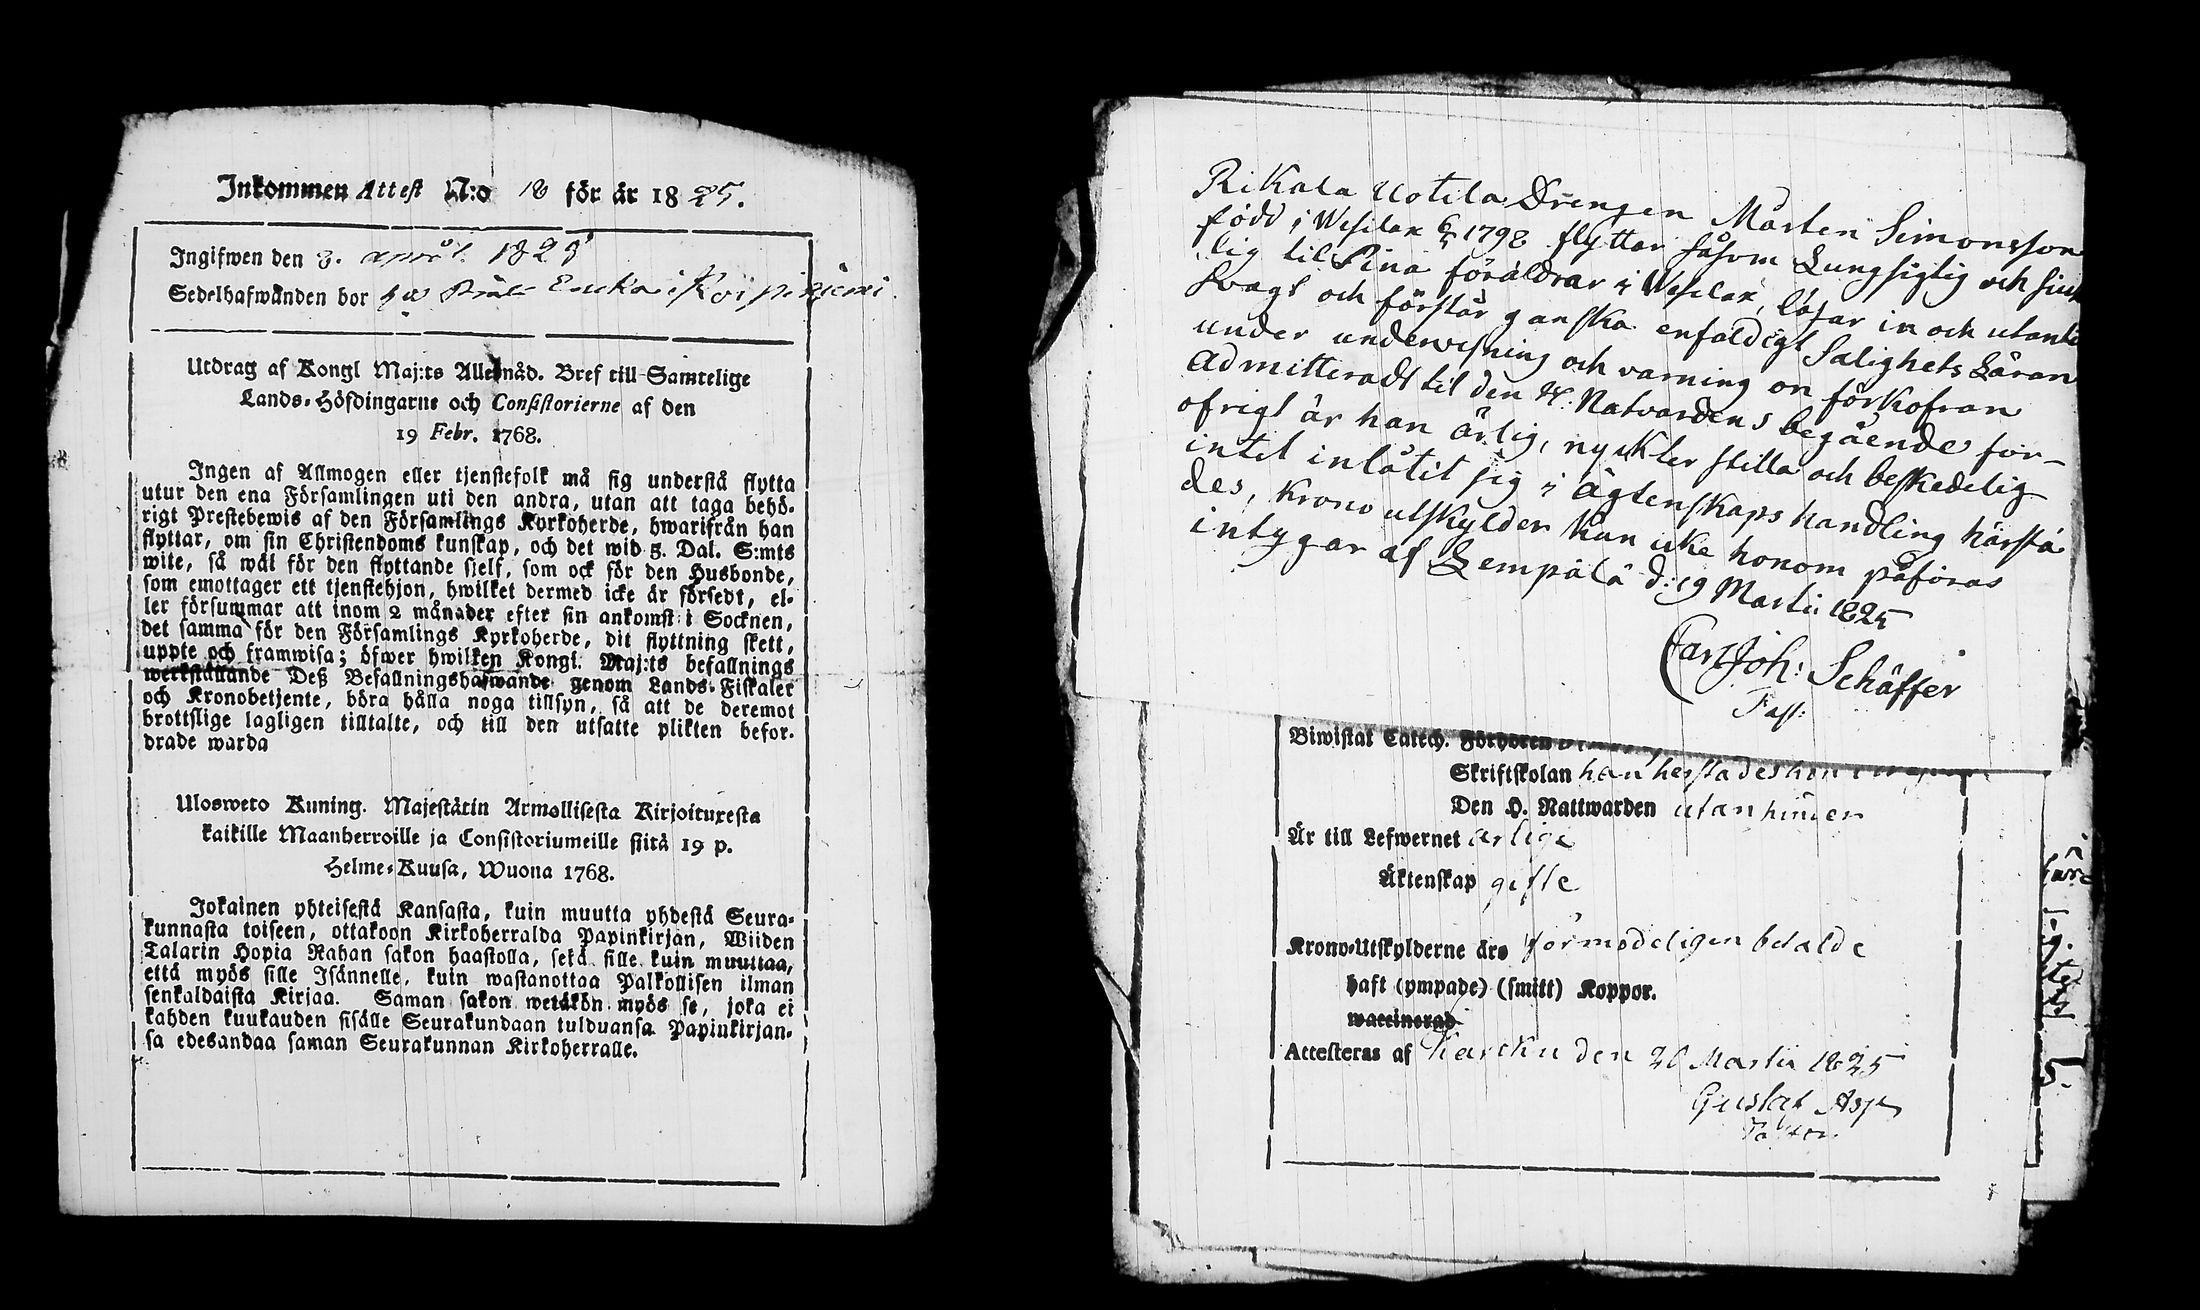 Inkommen Attest N:o 18 för år 1825.
Ingifwen den 3. april 1825
Sedelhafwanden bor Enka i
Utdrag af Kongl Maj:ts Allernåd. Bref till Samtelige
Lands-Höfdingarne och Consistorierne af den
19 Febr. 1768.
Ingen af Allmogen eller tjenstefolk må sig understå flytta
utur den ena Församlingen uti den andra, utan att taga behö-
rigt Prestebewis af den Församlings Kyrkoherde, hwarifrån han
flyttar, om sin Christendoms kunskap, och det wid 5. Dal. S:mts
wite, så wäl för den flyttande sjelf, som ock för den Husbonde,
som emottager ett tjenstehjon, hwilket dermed icke är försedt, el-
ler försummar att inom 2 månader efter sin ankomst i Socknen,
det samma för den Församlings Kyrkoherde, dit flyttning skett,
uppte och framwisa; öfwer hwilken Kongl. Maj:ts befallnings
werkställande Deß Befallningshafwande genom Lands-Fiskaler
och Kronobetjente, böra hålla noga tillsyn, så att de deremot
brottslige lagligen tilltalte, och till den utsatte plikten befor-
drade warda
Ulosweto Kuning. Majestätin Armollisesta Kirjoituxesta
kaikille Maanherroille ja Consistoriumeille siitä 19 p.
Helme-Kuusa, Wuona 1768.
Jokainen yhteisestä Kansasta, kuin muutta yhdestä Seura-
kunnasta toiseen, ottakoon Kirkoherralda Papinkirjan, Wiiden
Talarin Hopia Rahan sakon haastolla, sekä sille kuin muuttaa,
että myös sille Isännelle, kuin wastanottaa Palkollisen ilman
senkaldaista Kirjaa. Saman sakon wetäkön myös se, joka ei
kahden kuukauden sisälle Seurakundaan tulduansa Papinkirjan-
sa edesandaa saman Seurakunnan Kirkoherralle.
Rikala Uotila Drengen Mårten Simonsson
född i Wesilax 6/5 1798 flyttar såsom Lungsigtig och siuk
lig til Sina föräldrar i Wesilax, läsar in och utantil
Svagt och förstår ganska enfaldigt Salighets Läran
under undervisning och varning on förkofran
admitteradt til den H. Natvardens begående för-
ofrigt är han ärlig, nyckter stilla och beskedelig
intet inlåtit sig i Ägtenskaps handling härstä
des, Krono utskylder kan icke honom påföras
intygar af Lempälä d: 19 Martii 1825
Carl Joh: Schäffer
Past:
Biwistat Catech. Förhören
Skriftskolan
Den H. Nattwarden utan hinder
Är till Lefwernet ärlige
Äktenskap gifte
Krono-Utskylderne äro förmodeligen betalde
haft (ympade) (smitt) Koppor.
waccinerad
Attesteras af Karkku den 20 Martii 1825
Gustaf Asp
Pastor